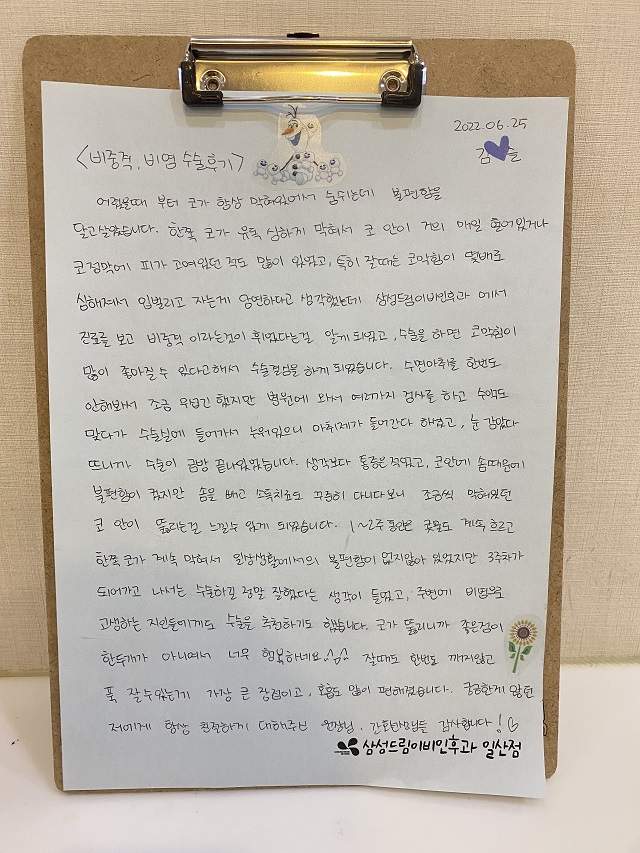 2022.06.25
김 슬
<비중격, 비염 수술후기>
어렸을때 부터 코가 항상 막혀있어서 숨쉬는데 불편함을
달고살았습니다. 한쪽 코가 유독 심하게 막혀서 코 안이 거의 매일 헐어있거나
코점막에 피가 고여있던 적도 많이 있었고, 특히 잘때는 코막힘이 몇배로
심해져서 입벌리고 자는게 당연하다고 생각했는데 삼성드림이비인후과 에서
진료를 보고 비중격 이라는것이 휘었다는걸 알게 되었고, 수술을 하면 코막힘이
많이 좋아질 수 있다고해서 수술결심을 하게 되었습니다. 수면마취를 한번도
안해봐서 조금 무섭긴 했지만 병원에 와서 여러가지 검사를 하고 수액도
맞다가 수술실에 들어가서 누워있으니 마취제가 들어간다 하셨고, 눈 감았다
뜨니까 수술이 금방 끝나있었습니다. 생각보다 통증은 적었고, 코안에 솜때문에
불편함이 컸지만 솜을 빼고 소독치료도 꾸준히 다니다보니 조금씩 막혀있던
코 안이 뚫리는걸 느낄수 있게 되었습니다. 1~2주 동안은 콧물도 계속 흐르고
한쪽 코가 계속 막혀서 일상생활에서의 불편함이 없지않아 있었지만 3주차가
되어가고 나서는 수술하길 정말 잘했다는 생각이 들었고, 주변에 비염으로
고생하는 지인들에게도 수술을 추천하기도 했습니다. 코가 뚫리니까 좋은점이
한두개가 아니여서 너무 행복하네요^^ 잘때도 한번도 깨지않고
푹 잘수있는게 가장 큰 장점이고, 호흡도 많이 편해졌습니다. 궁금한게 많던
저에게 항상 친절하게 대해주신 원장님, 간호사님들 감사합니다!♡
삼성드림이비인후과 일산점